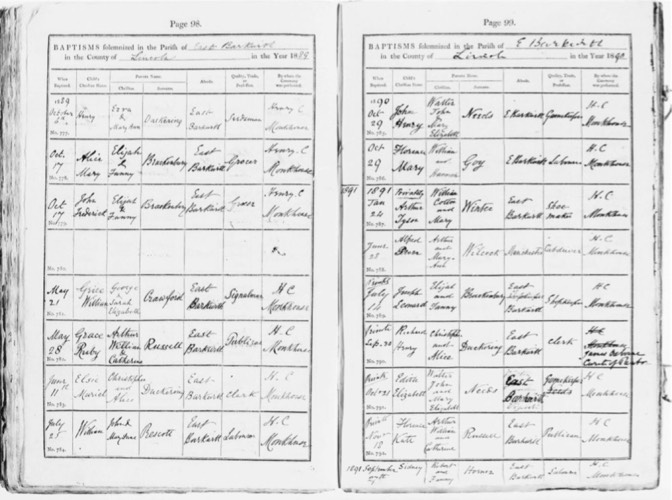 Page 98.
BAPTISMS solemnized in the Parish of East Barkwith
in the County of Lincoln in the Year 18
When Baptized. Child's Christian Name. Parents' Names. Abode. Quality, Trade, or Profession. By whom the Ceremony was performed.
Christian. Surname.
1889 October Henry Ezra & Mary Ann Duckering East Barkwith Henry C Monkhouse
No. 777.
Oct. 17 Alice Mary Elijah & Fanny Brackenbury East Barkwith Grocer Henry C Monkhouse
No. 778.
Oct 17 John Frederick Elijah & Fanny Brackenbury East Barkwith Grocer Henry C Monkhouse
No. 779.
No. 780.
May 21 William George & Sarah Elizabeth Crawford East Barkwith Signalman H C Monkhouse
No. 781.
May 28 Grace Ruby Arthur William & Catherine Russell East Barkwith Publican H. C Monkhouse
No. 782.
June 11 Elsie Muriel Christopher and Alice Duckering East Barkwith Clerk H. C Monkhouse
No. 783.
July 25 William John & East Barkwith Labourer H. C Monkhouse
No. 784.
Page 99.
BAPTISMS solemnized in the Parish of E Barkwith
in the County of Lincoln in the Year 1890
When Baptized. Child's Christian Name. Parents' Names. Abode. Quality, Trade, or Profession. By whom the Ceremony was performed.
Christian. Surname.
1890 Oct 29 John Henry Walter John & Mary Elizabeth E Barkwith Gamekeeper H. C Monkhouse
No. 785.
Oct 29 Florence Mary William and Goy E Barkwith Labourer H. C Monkhouse
No. 786.
1891
1891 Jan 24 Privately Arthur Tyson William Cotton and Mary Winter East Barkwith Shoemaker H. C Monkhouse
No. 787.
June 28 Alfred Arthur and Mary Ann Wilcock H. C Monkhouse
No. 788.
July 14 Joseph Leonard Elijah and Fanny Brackenbury East Barkwith Shopkeeper H. C Monkhouse
No. 789.
Private Sep. 20 Richard Henry Christopher and Alice Duckering East Barkwith Clerk James Curate of
No. 790.
Private Oct 21 Edith Elizabeth Walter John and Mary Elizabeth East Barkwith Gamekeeper H. C Monkhouse
No. 791.
Nov 18 Florence Kate Arthur William and Catherine Russell East Barkwith Publican H. C Monkhouse
No. 792.
1891 September Sidney Robert and Fanny East Barkwith Labourer H. C Monkhouse